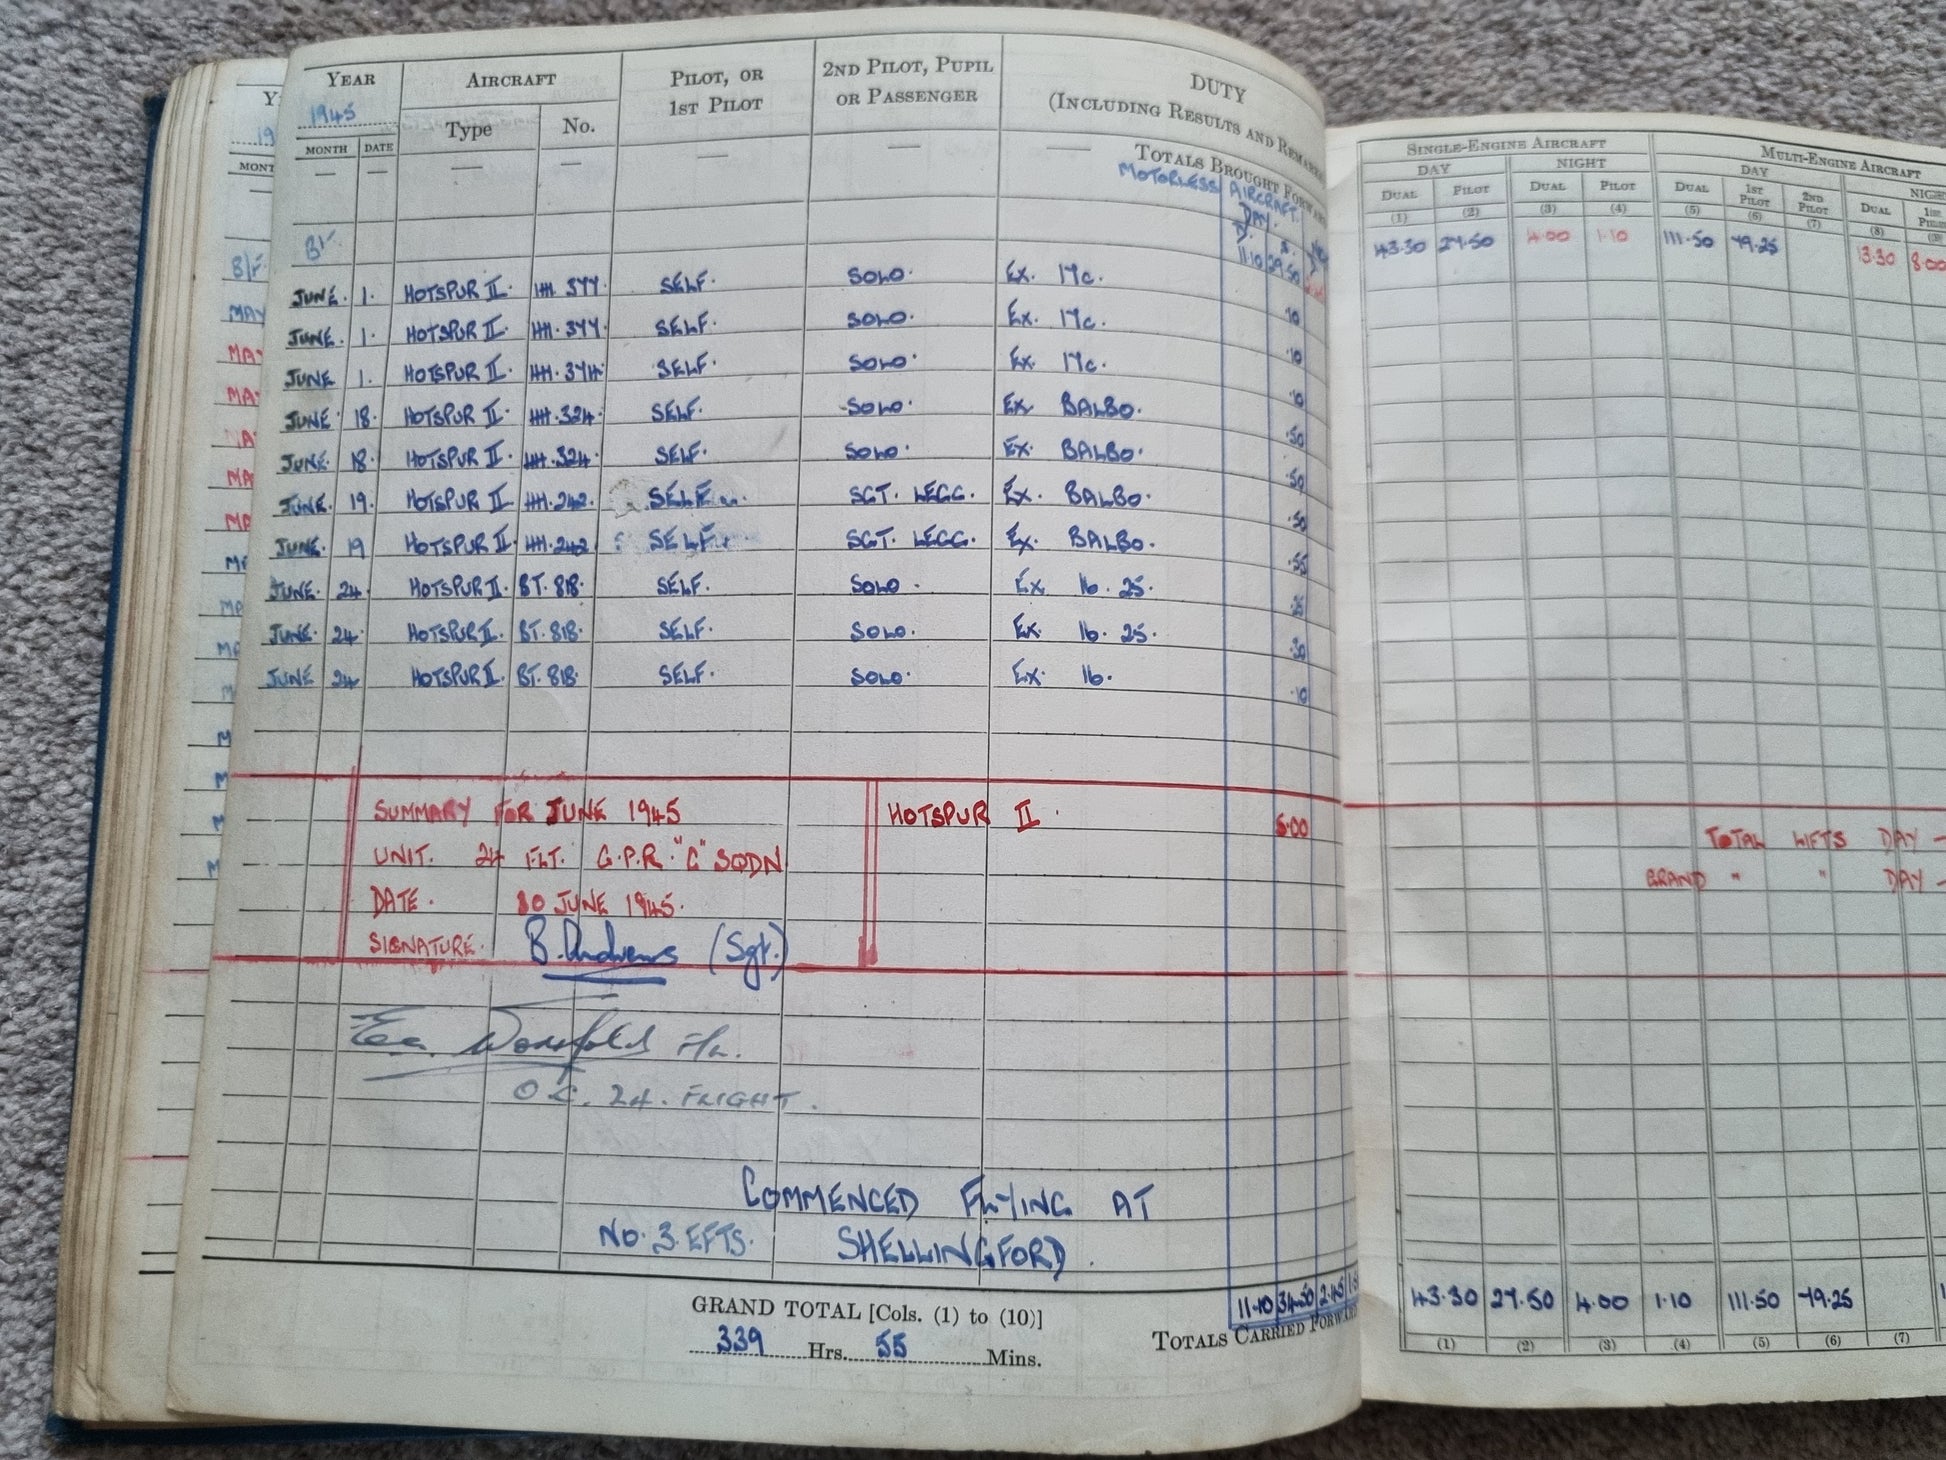 YEAR
1945
AIRCRAFT
PILOT, OR
1ST PILOT
2ND PILOT, PUPIL
OR PASSENGER
DUTY
(INCLUDING RESULTS AND REMARKS
MONTH DATE Type No.
TOTALS BROUGHT FORWARD
MOTORLESS AIRCRAFT.
DAY.
D. S.
11.10 29.50
JUNE. 1. HOTSPUR II. HH. 377 SELF. SOLO. Ex. 17c. .10
JUNE. 1. HOTSPUR II. HH. 377 SELF. SOLO. Ex. 17c. .10
JUNE 1. HOTSPUR II. HH. 374. SELF. SOLO. Ex. 17c. .10
JUNE. 18. HOTSPUR II. HH. 324. SELF. SOLO. Ex BALBO. .50
JUNE. 18. HOTSPUR II. HH. 324. SELF. SOLO. Ex. BALBO. .50
JUNE. 19. HOTSPUR II HH. 242. SELF SGT. LEGG. Ex. BALBO. .50
JUNE. 19 HOTSPUR II. HH. 242 SELF. SGT. LEGG. Ex. BALBO. .55
JUNE. 24. HOTSPUR II. BT. 818. SELF. SOLO. Ex 16. 25. .25
JUNE. 24. HOTSPUR II. BT. 818. SELF. SOLO. Ex. 16. 25. .30
JUNE 24 HOTSPUR II. BT. 818. SELF. SOLO. Ex. 16. .10
SUMMARY FOR JUNE 1945 HOTSPUR II. 5.00
UNIT. 24 FLT. G.P.R. "C" SQDN
DATE. 30 JUNE 1945.
SIGNATURE. B. Andrews (Sgt.)
F/L.
O.C. 24. FLIGHT.
COMMENCED FLYING AT
NO. 3 EFTS. SHELLINGFORD.
11.10 34.50 2.45
GRAND TOTAL [Cols. (1) to (10)]
339 Hrs. 55 Mins.
TOTALS CARRIED FORWARD
SINGLE-ENGINE AIRCRAFT MULTI-ENGINE AIRCRAFT
DAY NIGHT DAY
DUAL PILOT DUAL PILOT DUAL 1ST PILOT 2ND PILOT DUAL
(1) (2) (3) (4) (5) (6) (7) (8) (9)
43.30 27.50 4.00 1.10 111.50 79.25 13.30 8.00
TOTAL LIFTS DAY -
GRAND " " DAY -
43.30 27.50 4.00 1.10 111.50 79.25
(1) (2) (3) (4) (5) (6) (7)